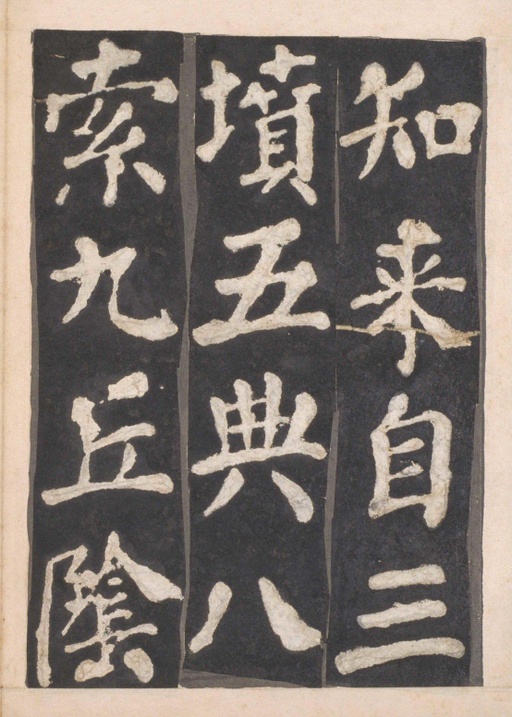 知来自三
墳五典八
索九丘陰